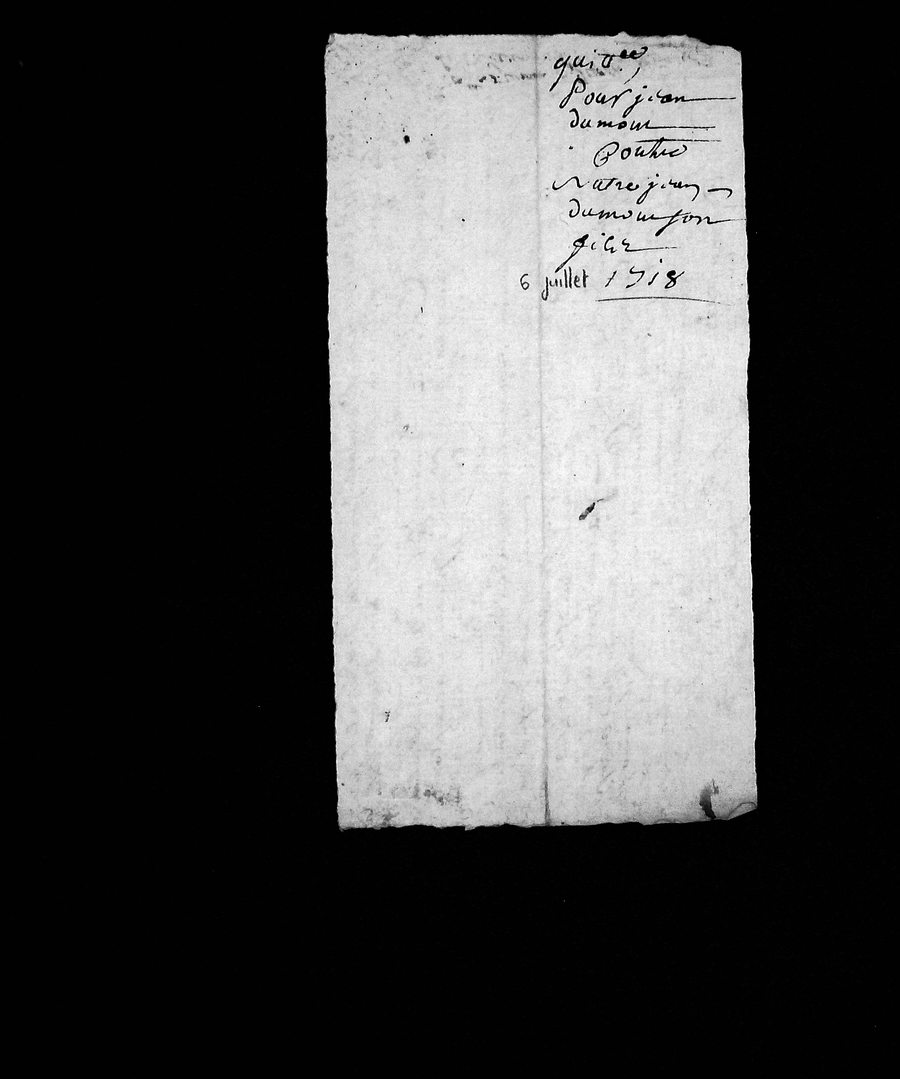 quittce
Pour jean
dumour
Contre
Autre jean
dumour son
filz
6 juillet 1718